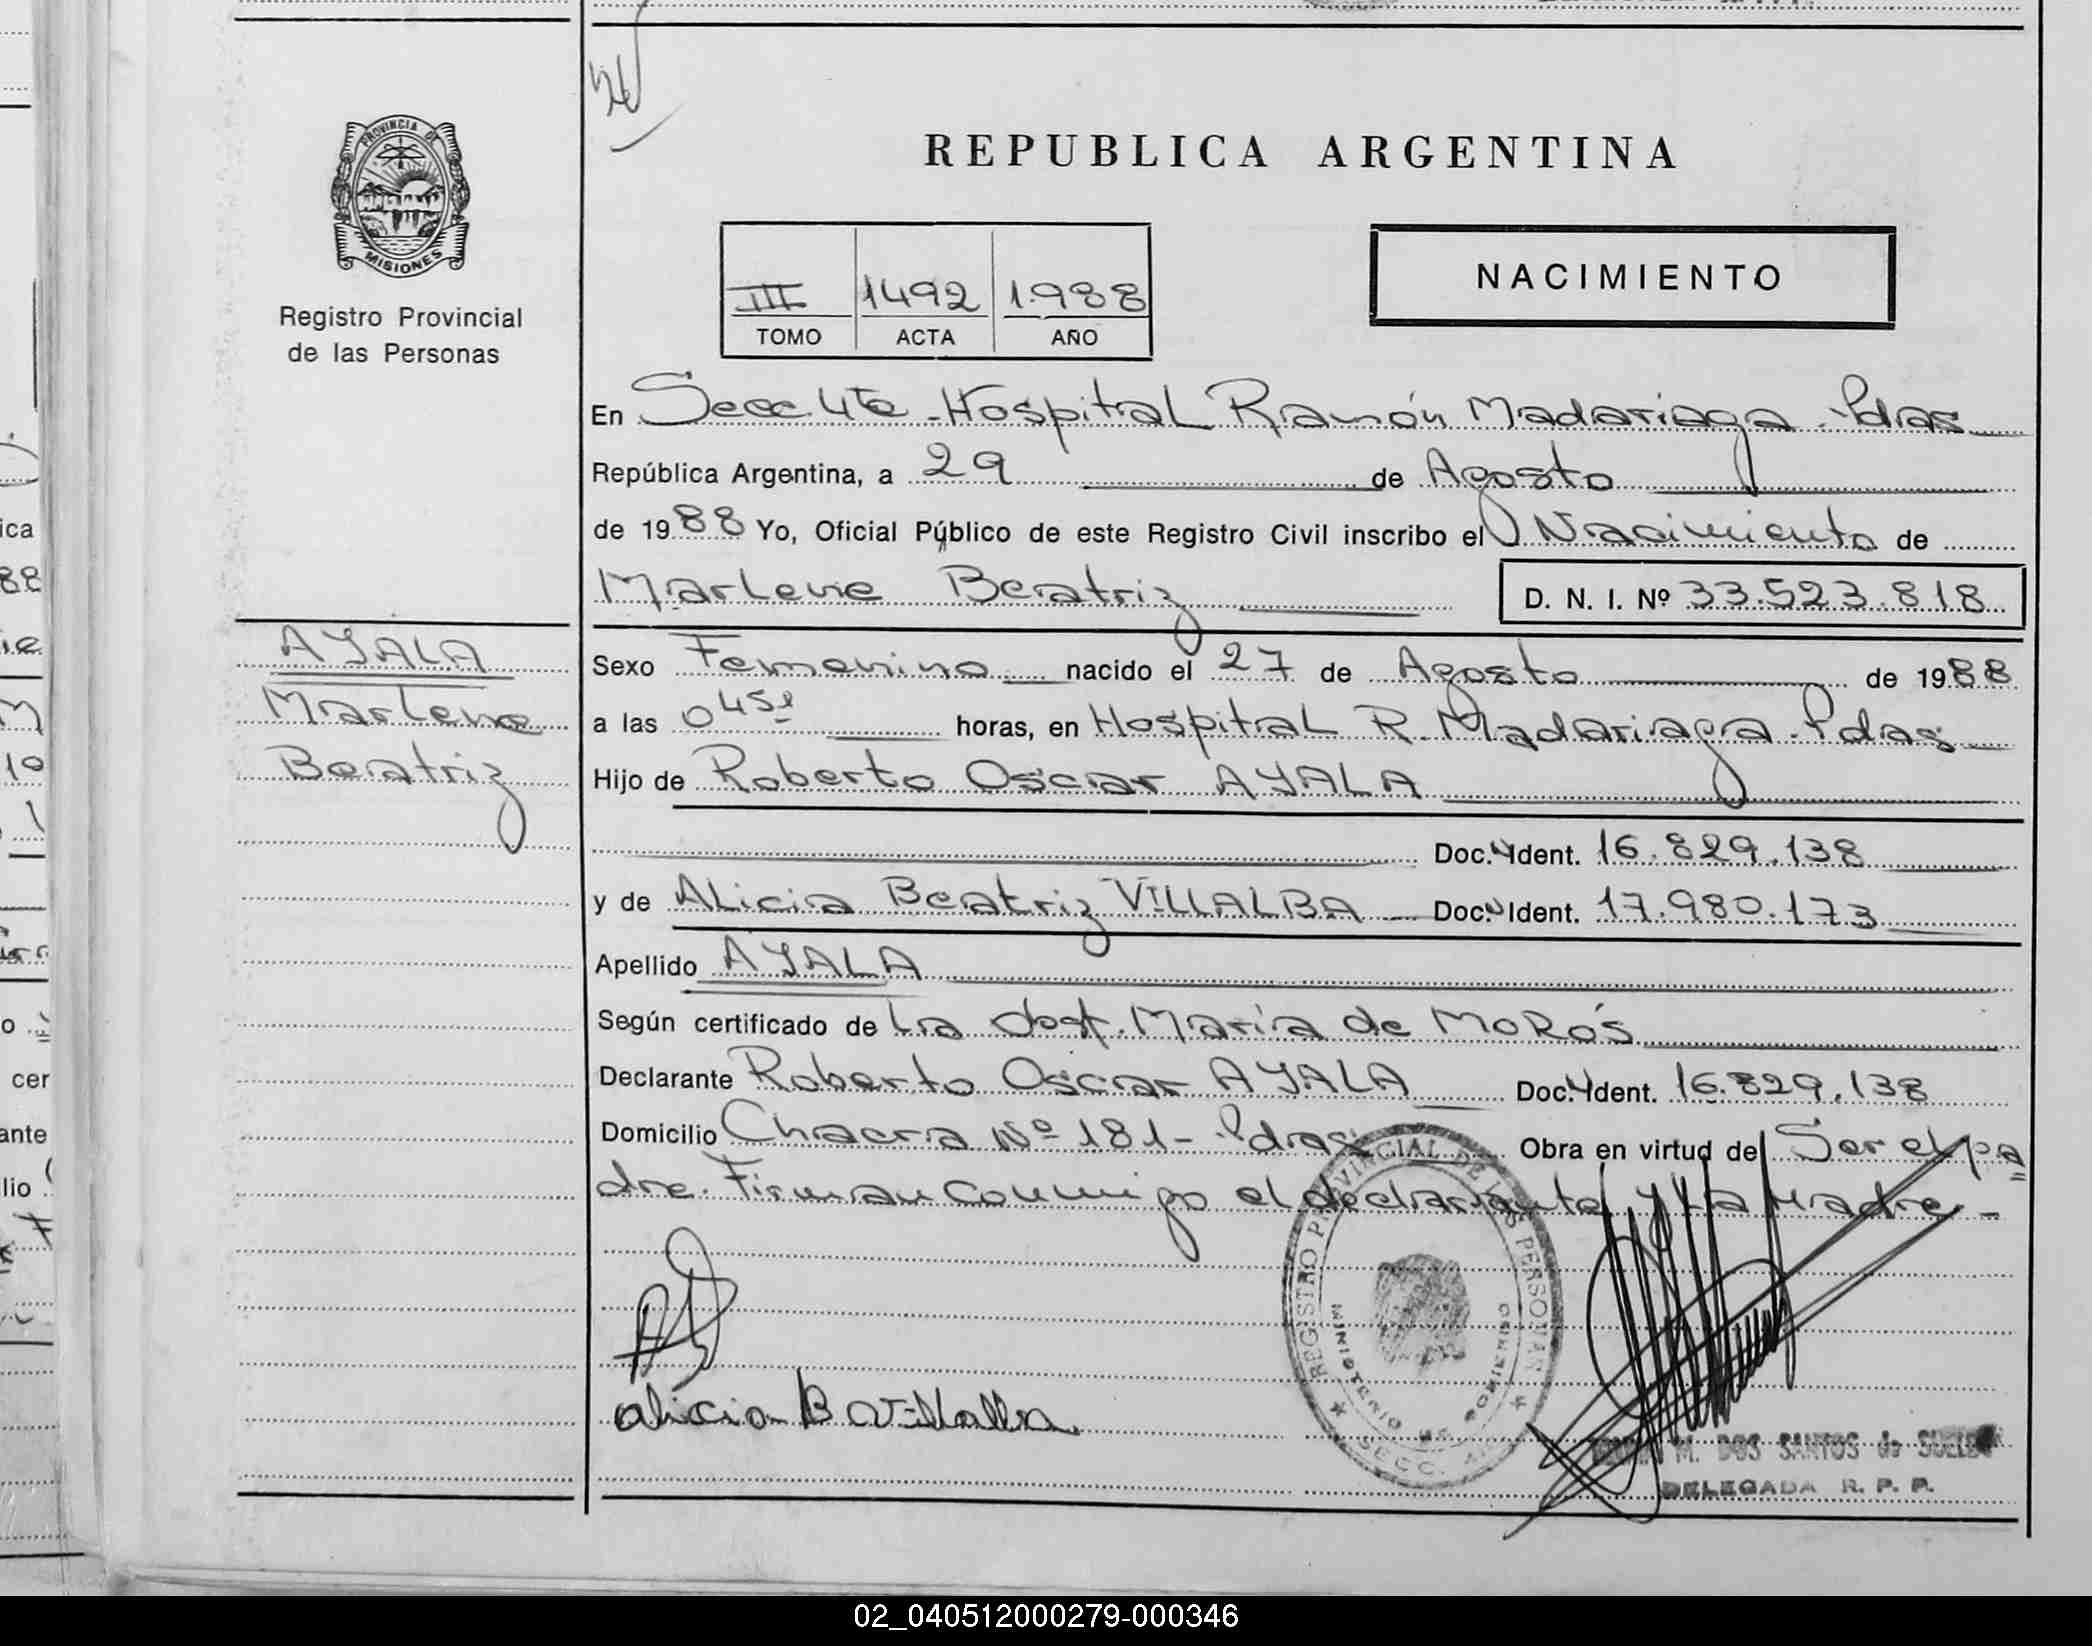 REPUBLICA ARGENTINA
PROVINCIA DE
MISIONES
Registro Provincial
de las Personas
III 1492 1.988
TOMO ACTA AÑO
NACIMIENTO
En Secc. 4ta - Hospital Ramón Madariaga - Pdas
República Argentina, a 29 de Agosto
de 1988 Yo, Oficial Público de este Registro Civil inscribo el Nacimiento de
Marlene Beatriz D. N. I. Nº 33.523.818
AYALA
Marlene
Beatriz
Sexo Femenino nacido el 27 de Agosto de 1988
a las 0 45 horas, en Hospital R. Madariaga - Pdas
Hijo de Roberto Oscar AYALA
Doc. Ident. 16.829.138
y de Alicia Beatriz VILLALBA Doc. Ident. 17.980.173
Apellido AYALA
Según certificado de La Obst. María de MoRós
Declarante Roberto Oscar AYALA Doc. Ident. 16.829.138
Domicilio Chacra Nº 181 - Pdas Obra en virtud de Ser el pa
dre. Firman conmigo el declarante y la Madre -
REGISTRO PROVINCIAL DE LAS PERSONAS
MINISTERIO DE GOBIERNO
SECC.
alicia B Villalba
M. DOS SANTOS de
DELEGADA R. P. P.
02_040512000279-000346